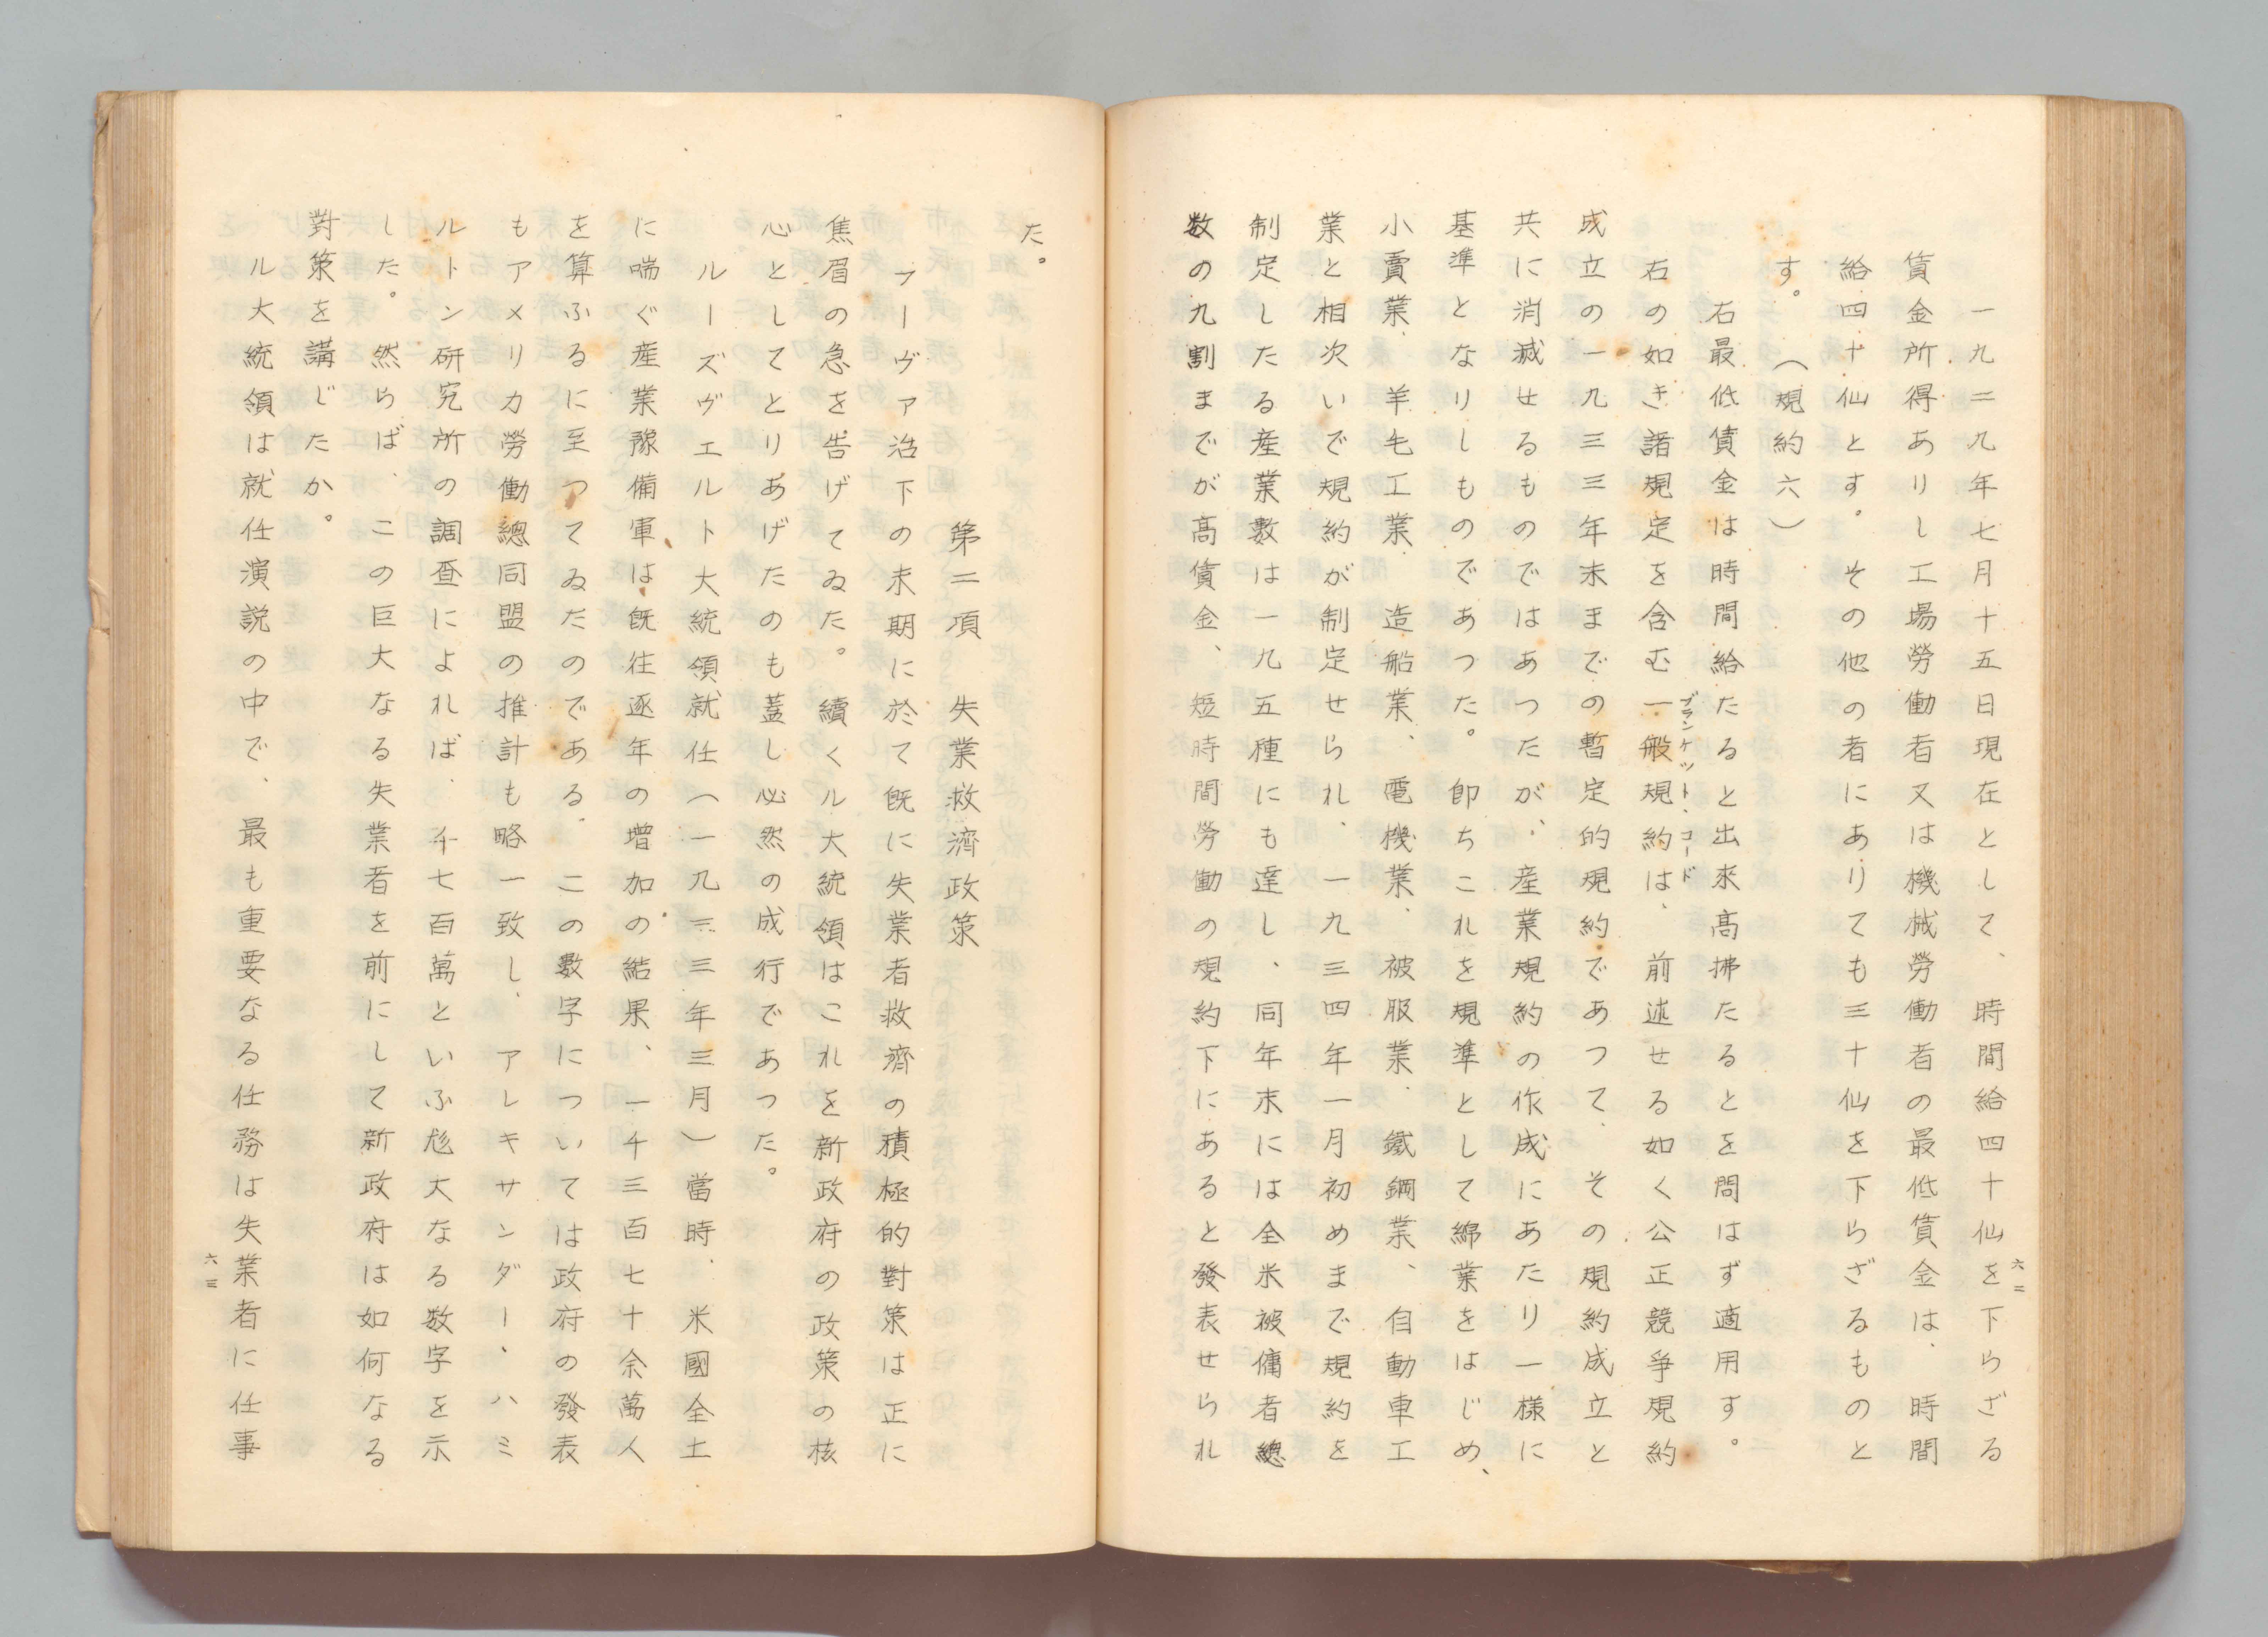 一九二九年七月十五日現在として、時間給四十仙を下らざる
賃金所得ありし工場勞働者又は機械勞働者の最低賃金は、時間
給四十仙とす。その他の者にありても三十仙を下らざるものと
す。（規約六）
右最低賃金は時間給たると出來高拂たるとを問はず適用す。
右の如き諸規定を含む一般規約は、前述せる如く公正競爭規約
ブランケット・コード
成立の一九三三年末までの暫定的規約であつて、その規約成立と
共に消滅せるものではあつたが、産業規約の作成にあたり一樣に
基準となりしものであつた。卽ちこれを規準として綿業をはじめ、
小賣業、羊毛工業、造船業、電機業、被服業、鐵鋼業、自動車工
業と相次いで規約が制定せられ、一九三四年一月初めまで規約を
制定したる産業數は一九五種にも達し、同年末には全米被傭者總
数の九割までが高賃金、短時間勞働の規約下にあると發表せられ
六二
た。
第二項 失業救濟政策
フーヴァ治下の末期に於て旣に失業者救濟の積極的對策は正に
焦眉の急を告げてゐた。續くル大統領はこれを新政府の政策の核
心としてとりあげたのも蓋し必然の成行であつた。
ルーズヴエルト大統領就任（一九三三年三月）當時、米國全土
に喘ぐ産業豫備軍は旣往逐年の增加の結果、一千三百七十余萬人
を算ふるに至つてゐたのである。この數字については政府の發表
もアメリカ勞働總同盟の推計も略一致し、アレキサンダー、ハミ
ルトン研究所の調査によれば、千七百萬といふ尨大なる数字を示
した。然らば、この巨大なる失業者を前にして新政府は如何なる
對策を講じたか。
ル大統領は就任演説の中で、最も重要なる任務は失業者に任事
六三